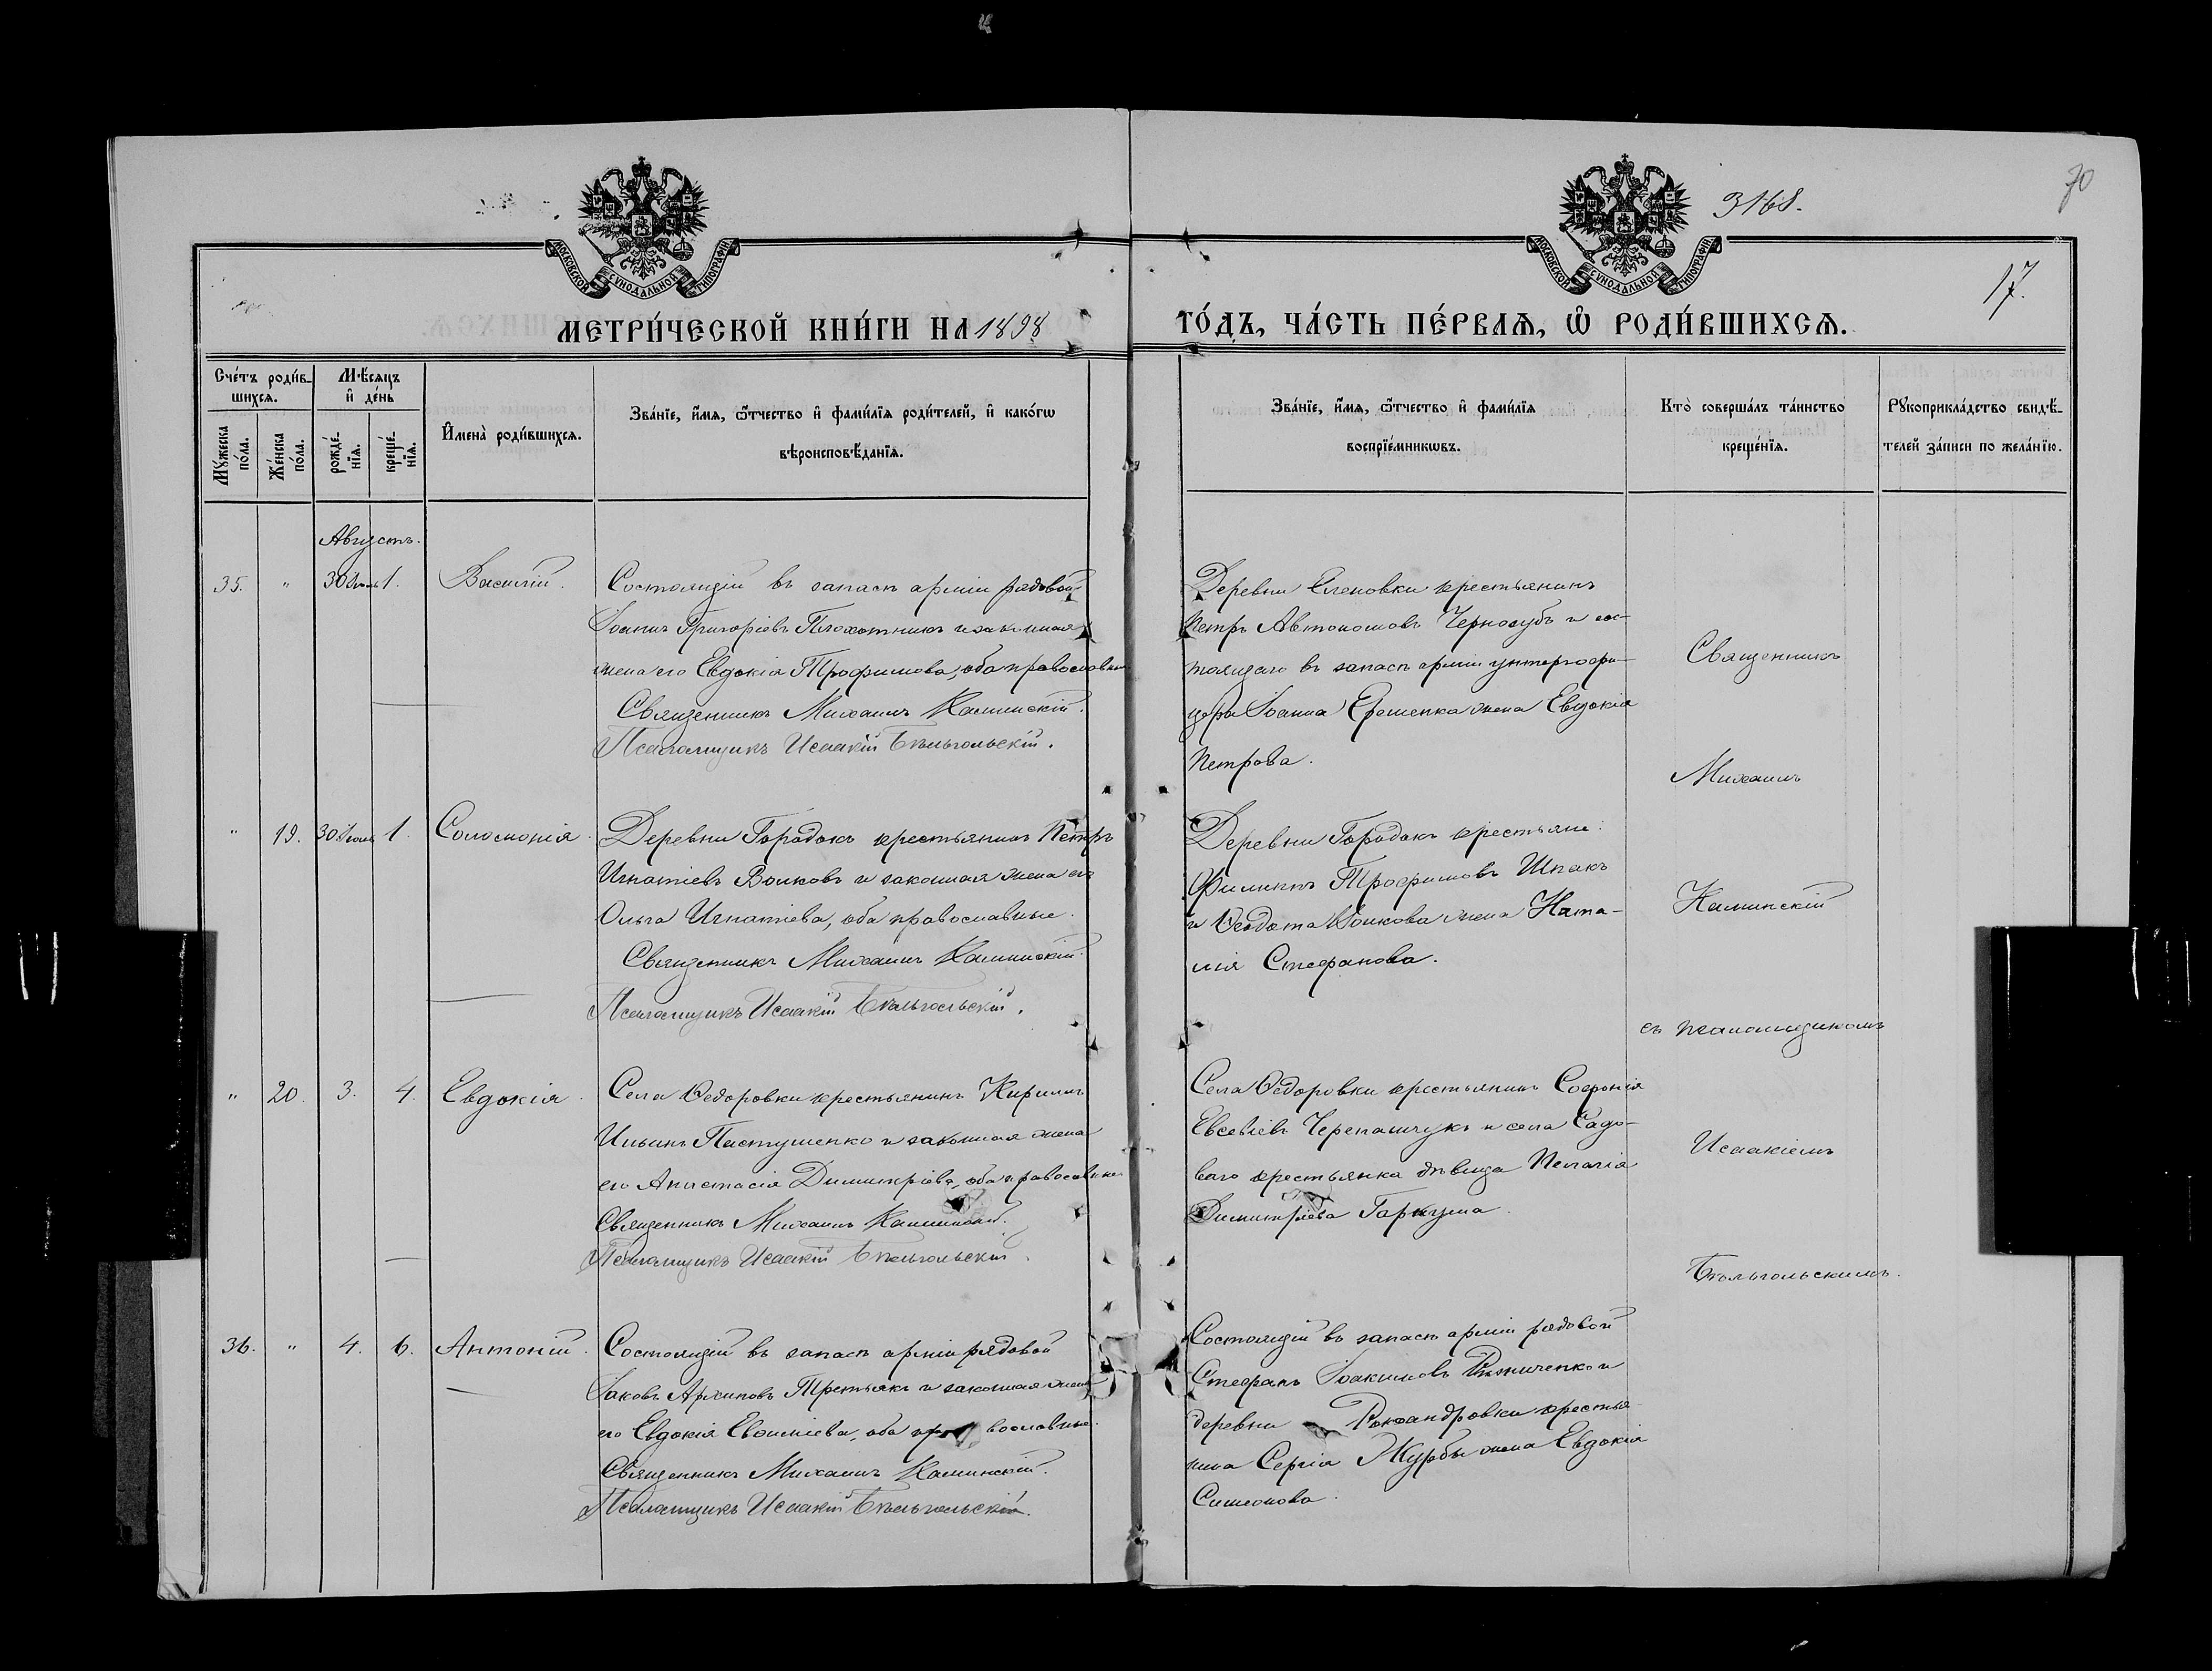 70
3168.
17.
МОСКОВСКОЙ СѴНОДАЛЬНОЙ ТИПОГРАФІИ
МОСКОВСКОЙ СѴНОДАЛЬНОЙ ТИПОГРАФІИ
МЕТРИ́ЧЕСКОЙ КНИ́ГИ НА 1898 ГО́ДЪ, ЧА́СТЬ ПЕ́РВАѦ, Ѡ РОДИ́ВШИХСѦ.
Сче́тъ роди́в-
шихсѧ.
Мꙋ́жеска
по́ла.
Же́нска
по́ла.
Мѣ́сѧцъ
и҆ де́нь
рожде́-
нїѧ.
креще́-
нїѧ.
И҆мена̀ роди́вшихсѧ.
Зва́нїе, и҆́мѧ, ѻ҆́тчество и҆ фамі́лїѧ роди́телей, и҆ како́гѡ
вѣроисповѣ́данїѧ.
Зва́нїе, и҆́мѧ, ѻ҆́тчество и҆ фамі́лїѧ
воспрїе́мникѡвъ.
Кто̀ соверша́лъ та́инство
креще́нїѧ.
Рꙋкоприкла́дство свидѣ́-
телей за́писи по жела́нїю.
Августъ.
35. " 30 Іюль 1. Василій.
Состоящій въ запасѣ арміи рядовой
Іоаннъ Григоріевъ Плохотникъ и законная
жена его Евдокія Трофимова, оба православные
Священникъ Михаилъ Каминскій.
Псаломщикъ Исаакій Бѣльгольскій.
Деревни Еленовки крестьянинъ
Петръ Автономовъ Чернозубъ и сос-
тоящаго въ запасѣ арміи унтеръ-офи-
цера Іоанна Ерешенка жена Евдокія
Петрова.
" 19. 30 Іюль 1. Соломонія.
Деревни Городокъ крестьянинъ Петръ
Игнатіевъ Волковъ и законная жена его
Ольга Игнатіева, оба православные.
Священникъ Михаилъ Каминскій.
Псаломщикъ Исаакій Бѣльгольскій.
Деревни Городокъ крестьяне:
Филиппъ Трофимовъ Шпакъ
и Ѳеодота Волкова жена Ната-
лія Стефанова.
" 20. 3. 4. Евдокія.
Села Ѳедоровки крестьянинъ Кириллъ
Ильинъ Пастушенко и законная жена
его Анастасія Димитріева, оба православные
Священникъ Михаилъ Каминскій.
Псаломщикъ Исаакій Бѣльгольскій.
Села Ѳедоровки крестьянинъ Софронія
Евсевіевъ Черепащукъ и села Садо-
ваго крестьянка дѣвица Пелагія
Димитріева Гаркуша.
36. " 4. 6. Антоній.
Состоящій въ запасѣ арміи рядовой
Іаковъ Архиповъ Третьякъ и законная жена
его Евдокія Евфиміева, оба православные.
Священникъ Михаилъ Каминскій.
Псаломщикъ Исаакій Бѣльгольскій.
Состоящій въ запасѣ арміи рядовой
Стефанъ Іоакимовъ и
деревни крестья-
нина Сергія Журбы жена Евдокія
Симеонова.
Священникъ
Михаилъ
Каминскій
съ псаломщикомъ
Исаакіемъ
Бѣльгольскимъ.